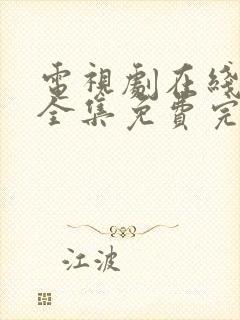 電視劇在綫
全集免費完
江波